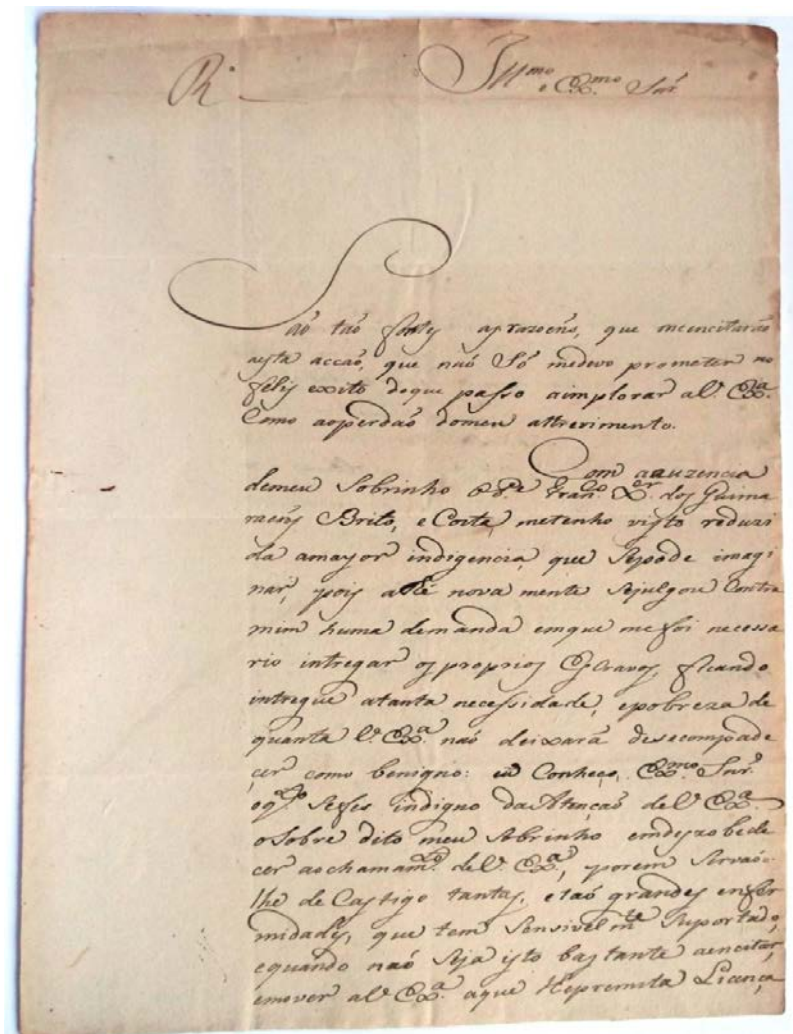 R.
Ill.mo e Ex.mo Snr
Saõ taõ fortes as razoens, que meencitaraõ
aesta acçaõ, que naõ Só medevo prometer no
felis exito deque passo aimplorar aV. Ex.a
Como aoperdaõ domeu attrevimento.
Com aauzencia
demeu Sobrinho Fran.co X.er dos Guima
raens Brito, e Costa, metenho visto reduzi
da amayor indigencia, que Sepode imagi
nar, pois athé nova mente Sejulgou Contra
mim huma demanda emque mefoi necessa
rio intregar os proprios Escravos, ficando
intregue atanta necessidade, epobreza de
quanta V. Ex.a naõ deixará desecompade
çer como benigno: eu Conheço, Ex.mo Snr.
oq.to Sefes indigno daAtençaõ deV. Ex.a
oSobre dito meu Sobrinho emdezobede
cer aochamam.to deV. Ex.a, porem Sirvaõ-
lhe de Castigo tantas, etaõ grandes enfer
midades, que tem Sensivelm.te Suportado,
equando naõ Seja isto bastante aencitar,
emover aV. Ex.a aque lhepremita Licença